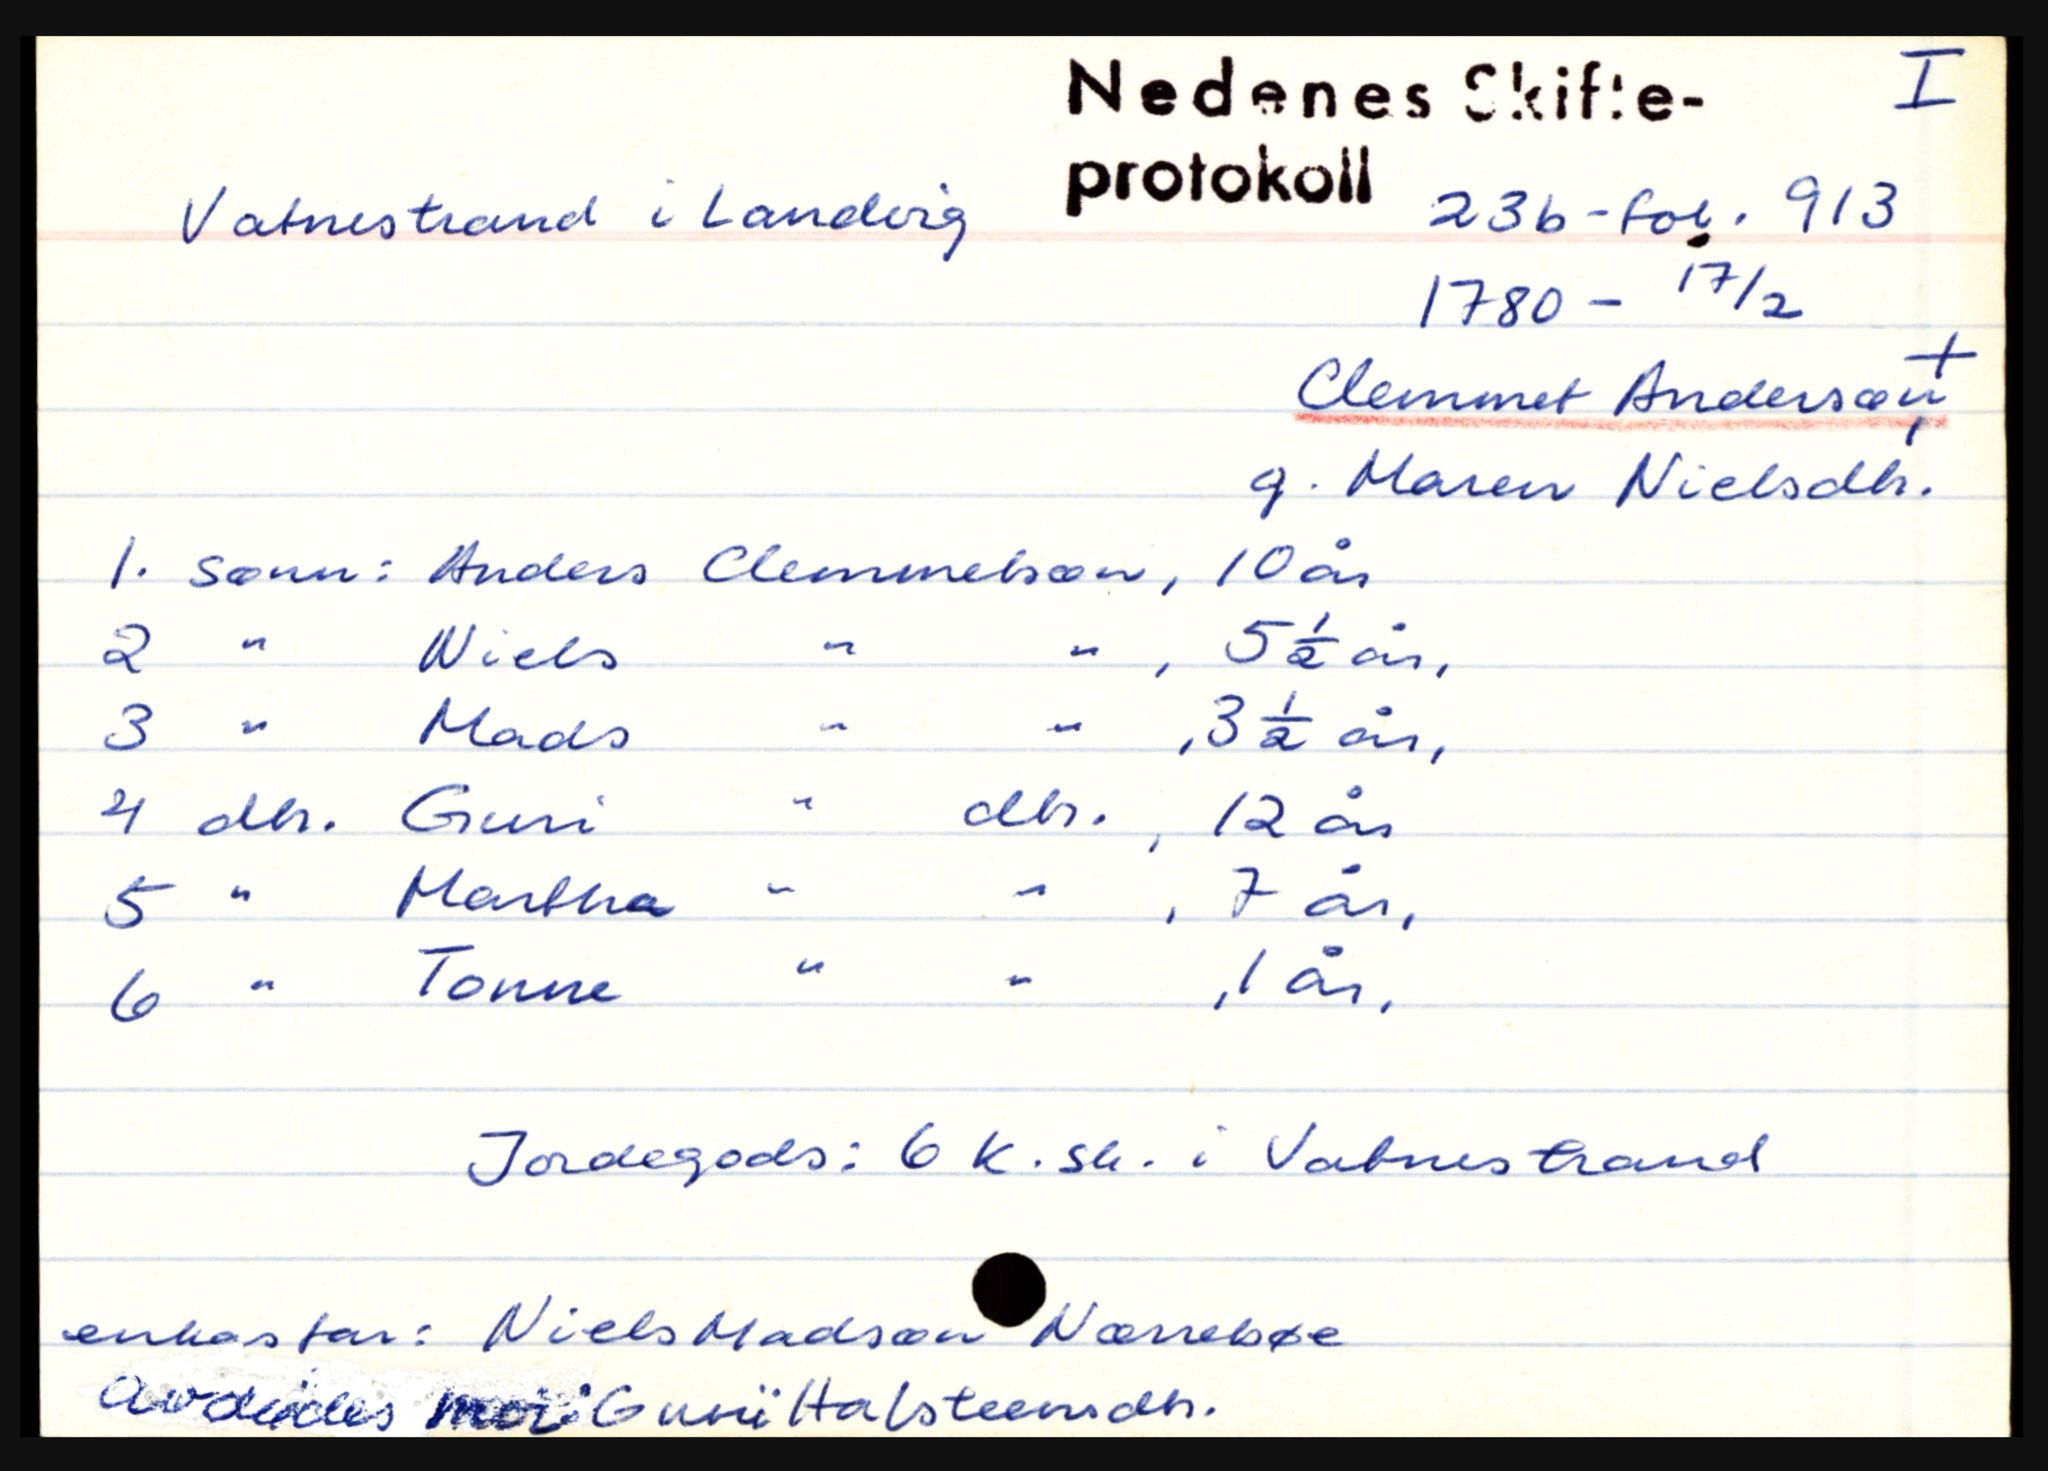 Nedenes Skifte- I
protokoll
Vatnestrand i Landvig 23b - fol. 913
1780 - 17/2
Clemmet Andersøn +
g. Maren Nielsdtr.
1. sønn: Anders Clemmetsøn, 10 år
2 " Niels " " , 5 1/2 år,
3 " Mads " " , 3 1/2 år,
4 dtr. Guri " dtr. , 12 år
5 " Martha " " , 7 år,
6 " Tonne " " , 1 år,
Jordegods: 6 k. sk. i Vatnestrand
enkas far: Niels Madsøn Nørrebøe
avdødes mor: Guri Halsteensdtr.